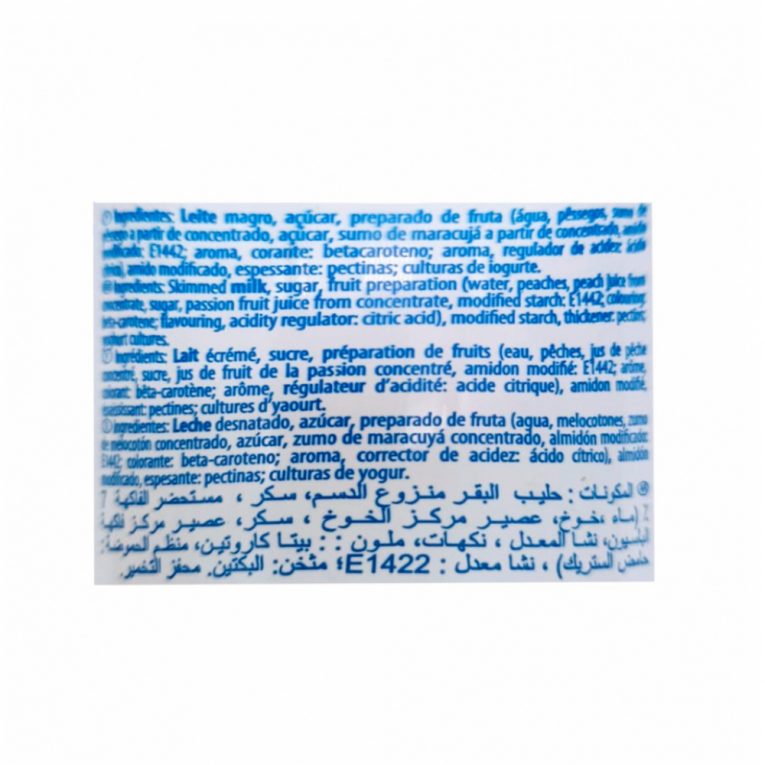 Ingredientes: Leite magro, açúcar, preparado de fruta (água, pêssegos, sumo de
pêssego a partir de concentrado, açúcar, sumo de maracujá a partir de concentrado, amido
modificado: E1442, aroma, corante: betacaroteno; aroma, regulador de acidez: ácido
amido modificado, espessante: pectinas; culturas de iogurte.
Ingredients: Skimmed milk, sugar, fruit preparation (water, peaches, peach juice from
concentrate, sugar, passion fruit juice from concentrate, modified starch: E1442, colouring:
beta-carotene; flavouring, acidity regulator: citric acid), modified starch, thickener: pectins;
yoghurt cultures.
Ingrédients: Lait écrémé, sucre, préparation de fruits (eau, pêches, jus de pêche
concentré, sucre, jus de fruit de la passion concentré, amidon modifié: E1442; arôme,
colorant: bêta-carotène; arôme, régulateur d'acidité: acide citrique), amidon modifié,
épaississant: pectines; cultures d'yaourt.
Ingredientes: Leche desnatado, azúcar, preparado de fruta (agua, melocotones, zumo
de melocotón concentrado, azúcar, zumo de maracuyá concentrado, almidón modificado:
E1442; colorante: beta-caroteno; aroma, corrector de acidez: ácido cítrico), almidón
modificado, espesante: pectinas; culturas de yogur.
المكونات: حليب البقر منزوع الدسم، سكر، مستحضر الفاكهة 7
٪ (ماء، خوخ، عصير مركز الخوخ، سكر، عصير مركز فاكهة
الباسيون، نشا المعدل، نكهات، ملون : : بيتا كاروتين، منظم الحموضة:
حامض الستريك)، نشا معدل : E1422؛ مثخن: البكتين. محفز التخمير.